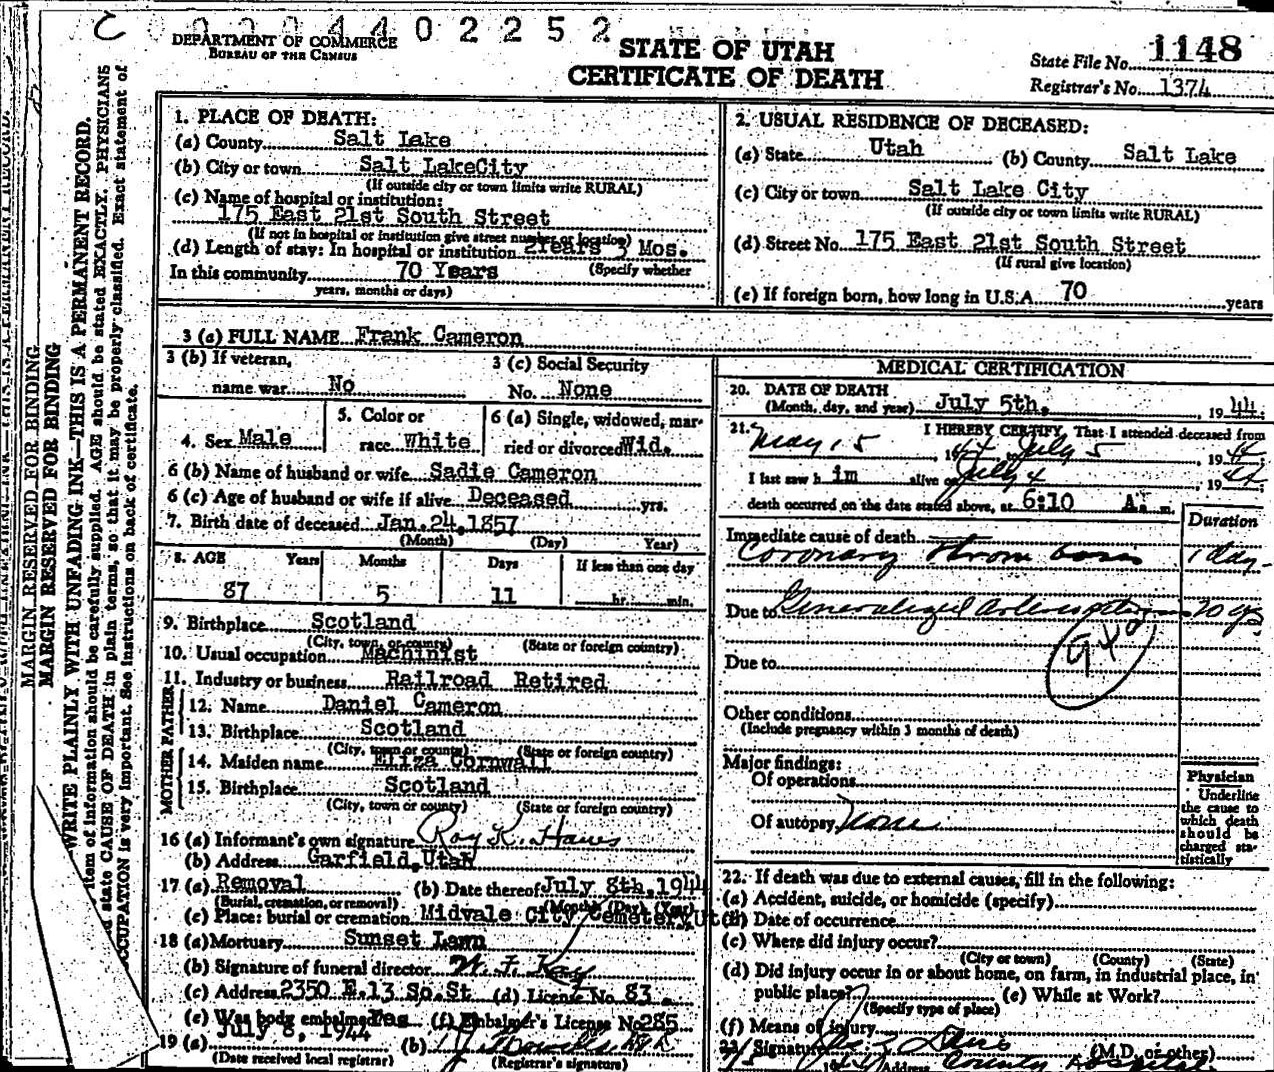 0 4 4 0 2 2 5 2
DEPARTMENT OF COMMERCE
BUREAU OF THE CENSUS
STATE OF UTAH
CERTIFICATE OF DEATH
State File No. 1148
Registrar's No. 1374
MARGIN RESERVED FOR BINDING
MARGIN RESERVED FOR BINDING
WRITE PLAINLY WITH UNFADING INK—THIS IS A PERMANENT RECORD.
item of information should be carefully supplied. AGE should be stated EXACTLY. PHYSICIANS
state CAUSE OF DEATH in plain terms, so that it may be properly classified. Exact statement of
OCCUPATION is very important. See instructions on back of certificate.
1. PLACE OF DEATH:
(a) County Salt Lake
(b) City or town Salt LakeCity
(If outside city or town limits write RURAL)
(c) Name of hospital or institution:
175 East 21st South Street
(If not in hospital or institution give street number or location)
(d) Length of stay: In hospital or institution 2Years 3 Mos.
In this community 70 Years (Specify whether
years, months or days)
2. USUAL RESIDENCE OF DECEASED:
(a) State Utah (b) County Salt Lake
(c) City or town Salt Lake City
(If outside city or town limits write RURAL)
(d) Street No. 175 East 21st South Street
(If rural give location)
(e) If foreign born, how long in U.S.A. 70 years
3 (a) FULL NAME Frank Cameron
3 (b) If veteran,
name war No
3 (c) Social Security
No. None
4. Sex Male
5. Color or
race White
6 (a) Single, widowed, mar-
ried or divorced Wid.
6 (b) Name of husband or wife Sadie Cameron
6 (c) Age of husband or wife if alive Deceased yrs.
7. Birth date of deceased Jan. 24, 1857
(Month) (Day) Year)
8. AGE Years Months Days If less than one day
87 5 11 hr. min.
9. Birthplace Scotland
(City, town, or county) (State or foreign country)
10. Usual occupation Machinist
11. Industry or business Railroad Retired
FATHER
12. Name Daniel Cameron
13. Birthplace Scotland
(City, town or county) (State or foreign country)
MOTHER
14. Maiden name Eliza Cornwall
15. Birthplace Scotland
(City, town or county) (State or foreign country)
16 (a) Informant's own signature Roy K. Hawes
(b) Address Garfield, Utah
17 (a) Removal (b) Date thereof July 8th, 1944
(Burial, cremation, or removal) (Month) (Day) (Year)
(c) Place: burial or cremation Midvale City Cemetery Utah
18 (a) Mortuary Sunset Lawn
(b) Signature of funeral director
(c) Address 2350 E. 13 So. St (d) License No. 83
(e) Was body embalmed Yes (f) Embalmer's License No. 285
19 (a) July 8, 1944 (b)
(Date received local registrar) (Registrar's signature)
MEDICAL CERTIFICATION
20. DATE OF DEATH
(Month, day, and year) July 5th, 1944
21. I HEREBY CERTIFY, That I attended deceased from
May 15, 1944 to July 5, 1944
I last saw h im alive on July 4, 1944
death occurred on the date stated above, at 6:10 A. m.
Duration
Immediate cause of death
Coronary thrombosis 1 day
Due to Generalized Arteriosclerosis 20 yrs
940
Due to
Other conditions
(Include pregnancy within 3 months of death)
Major findings:
Of operations
Of autopsy None
Physician
Underline
the cause to
which death
should be
charged sta-
tistically
22. If death was due to external causes, fill in the following:
(a) Accident, suicide, or homicide (specify)
(b) Date of occurrence
(c) Where did injury occur?
(City or town) (County) (State)
(d) Did injury occur in or about home, on farm, in industrial place, in
public place? (e) While at Work?
(Specify type of place)
(f) Means of injury
23. Signature (M.D. or other)
Address County Hospital